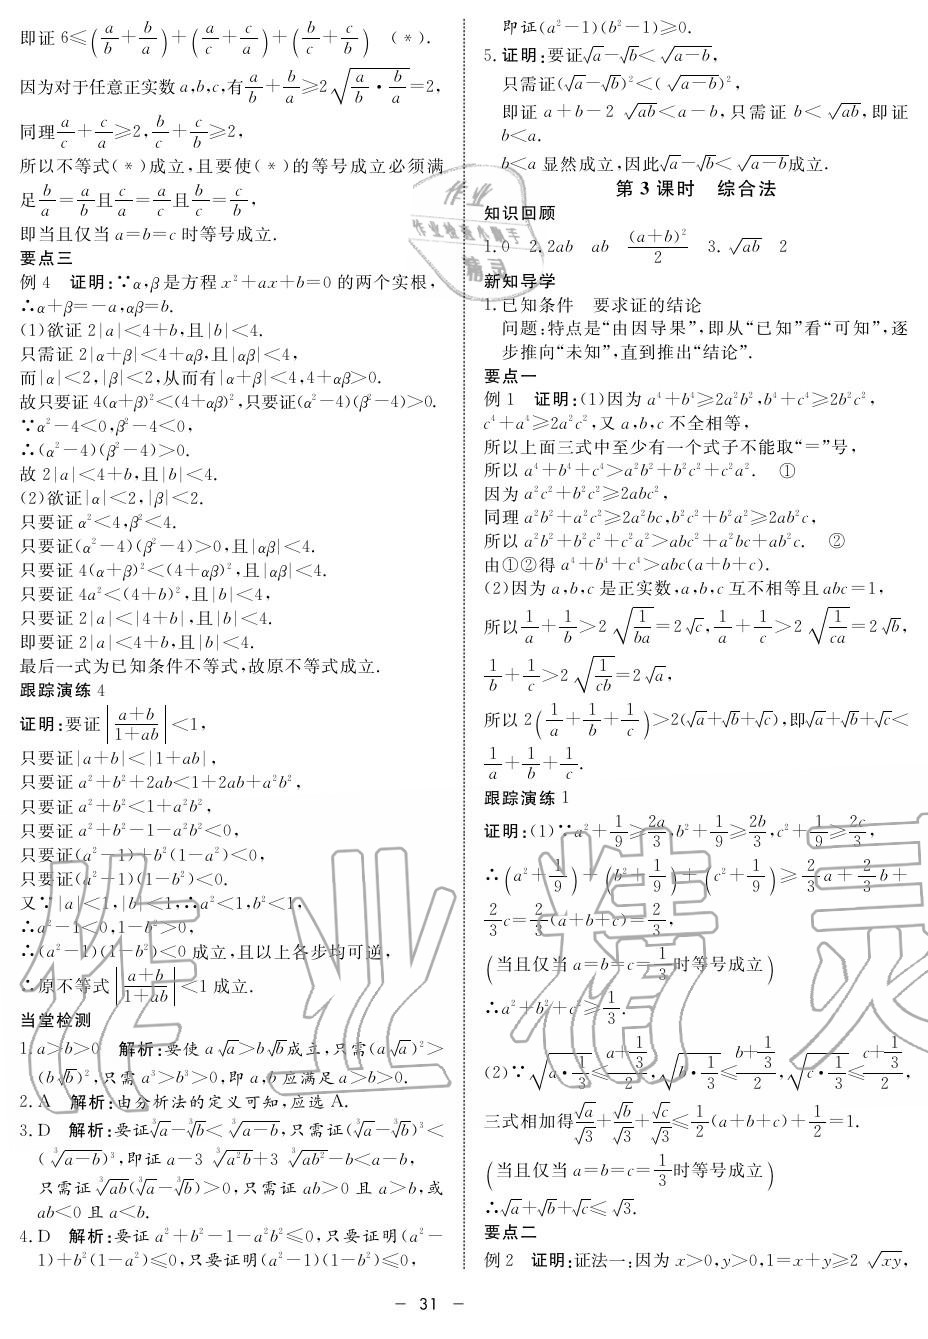 即证 6≤(a/b+b/a)+(a/c+c/a)+(b/c+c/b) (*).
因为对于任意正实数 a,b,c,有a/b+b/a≥2√(a/b·b/a)=2,
同理a/c+c/a≥2,b/c+c/b≥2,
所以不等式(*)成立,且要使(*)的等号成立必须满
足b/a=a/b且c/a=a/c且b/c=c/b,
即当且仅当 a=b=c 时等号成立.
要点三
例 4 证明:∵α,β是方程 x²+ax+b=0 的两个实根,
∴α+β=-a,αβ=b.
(1)欲证 2|a|<4+b,且|b|<4.
只需证 2|α+β|<4+αβ,且|αβ|<4,
而|α|<2,|β|<2,从而有|α+β|<4,4+αβ>0.
故只要证 4(α+β)²<(4+αβ)²,只要证(α²-4)(β²-4)>0.
∵α²-4<0,β²-4<0,
∴(α²-4)(β²-4)>0.
故 2|a|<4+b,且|b|<4.
(2)欲证|α|<2,|β|<2.
只要证 α²<4,β²<4.
只要证(α²-4)(β²-4)>0,且|αβ|<4.
只要证 4(α+β)²<(4+αβ)²,且|αβ|<4.
只要证 4a²<(4+b)²,且|b|<4,
只要证 2|a|<|4+b|,且|b|<4.
即要证 2|a|<4+b,且|b|<4.
最后一式为已知条件不等式,故原不等式成立.
跟踪演练 4
证明:要证|(a+b)/(1+ab)|<1,
只要证|a+b|<|1+ab|,
只要证 a²+b²+2ab<1+2ab+a²b²,
只要证 a²+b²<1+a²b²,
只要证 a²+b²-1-a²b²<0,
只要证(a²-1)+b²(1-a²)<0,
只要证(a²-1)(1-b²)<0.
又∵|a|<1,|b|<1,∴a²<1,b²<1,
∴a²-1<0,1-b²>0,
∴(a²-1)(1-b²)<0 成立,且以上各步均可逆,
∴原不等式|(a+b)/(1+ab)|<1 成立.
当堂检测
1. a>b>0 解析:要使 a√a>b√b成立,只需(a√a)²>
(b√b)²,只需 a³>b³>0,即 a,b 应满足 a>b>0.
2. A 解析:由分析法的定义可知,应选 A.
3. D 解析:要证³√a-³√b<³√(a-b),只需证(³√a-³√b)³<
(³√(a-b))³,即证 a-3 ³√(a²b)+3 ³√(ab²)-b<a-b,
只需证 ³√(ab)(³√a-³√b)>0,只需证 ab>0 且 a>b,或
ab<0 且 a<b.
4. D 解析:要证 a²+b²-1-a²b²≤0,只要证明(a²-
1)+b²(1-a²)≤0,只要证明(a²-1)(1-b²)≤0,
即证(a²-1)(b²-1)≥0.
5. 证明:要证√a-√b<√(a-b),
只需证(√a-√b)²<(√(a-b))²,
即证 a+b-2√(ab)<a-b,只需证 b<√(ab),即证
b<a.
b<a 显然成立,因此√a-√b<√(a-b)成立.
第 3 课时 综合法
知识回顾
1. 0 2. 2ab ab (a+b)²/2 3. √(ab) 2
新知导学
1. 已知条件 要求证的结论
问题:特点是“由因导果”,即从“已知”看“可知”,逐
步推向“未知”,直到推出“结论”.
要点一
例 1 证明:(1)因为 a⁴+b⁴≥2a²b²,b⁴+c⁴≥2b²c²,
c⁴+a⁴≥2a²c²,又 a,b,c 不全相等,
所以上面三式中至少有一个式子不能取“=”号,
所以 a⁴+b⁴+c⁴>a²b²+b²c²+c²a². ①
因为 a²c²+b²c²≥2abc²,
同理 a²b²+a²c²≥2a²bc,b²c²+b²a²≥2ab²c,
所以 a²b²+b²c²+c²a²>abc²+a²bc+ab²c. ②
由①②得 a⁴+b⁴+c⁴>abc(a+b+c).
(2)因为 a,b,c 是正实数,a,b,c 互不相等且 abc=1,
所以1/a+1/b>2√(1/ba)=2√c,1/a+1/c>2√(1/ca)=2√b,
1/b+1/c>2√(1/cb)=2√a,
所以 2(1/a+1/b+1/c)>2(√a+√b+√c),即√a+√b+√c<
1/a+1/b+1/c.
跟踪演练 1
证明:(1)∵a²+1/9≥2a/3,b²+1/9≥2b/3,c²+1/9≥2c/3,
∴(a²+1/9)+(b²+1/9)+(c²+1/9)≥2/3a+2/3b+
2/3c=2/3(a+b+c)=2/3,
(当且仅当 a=b=c=1/3时等号成立)
∴a²+b²+c²≥1/3.
(2)∵√(a·1/3)≤(a+1/3)/2,√(b·1/3)≤(b+1/3)/2,√(c·1/3)≤(c+1/3)/2,
三式相加得√a/√3+√b/√3+√c/√3≤1/2(a+b+c)+1/2=1.
(当且仅当 a=b=c=1/3时等号成立)
∴√a+√b+√c≤√3.
要点二
例 2 证明:证法一:因为 x>0,y>0,1=x+y≥2√(xy),
- 31 -
作业
作业检查小助手
精灵
作业精灵